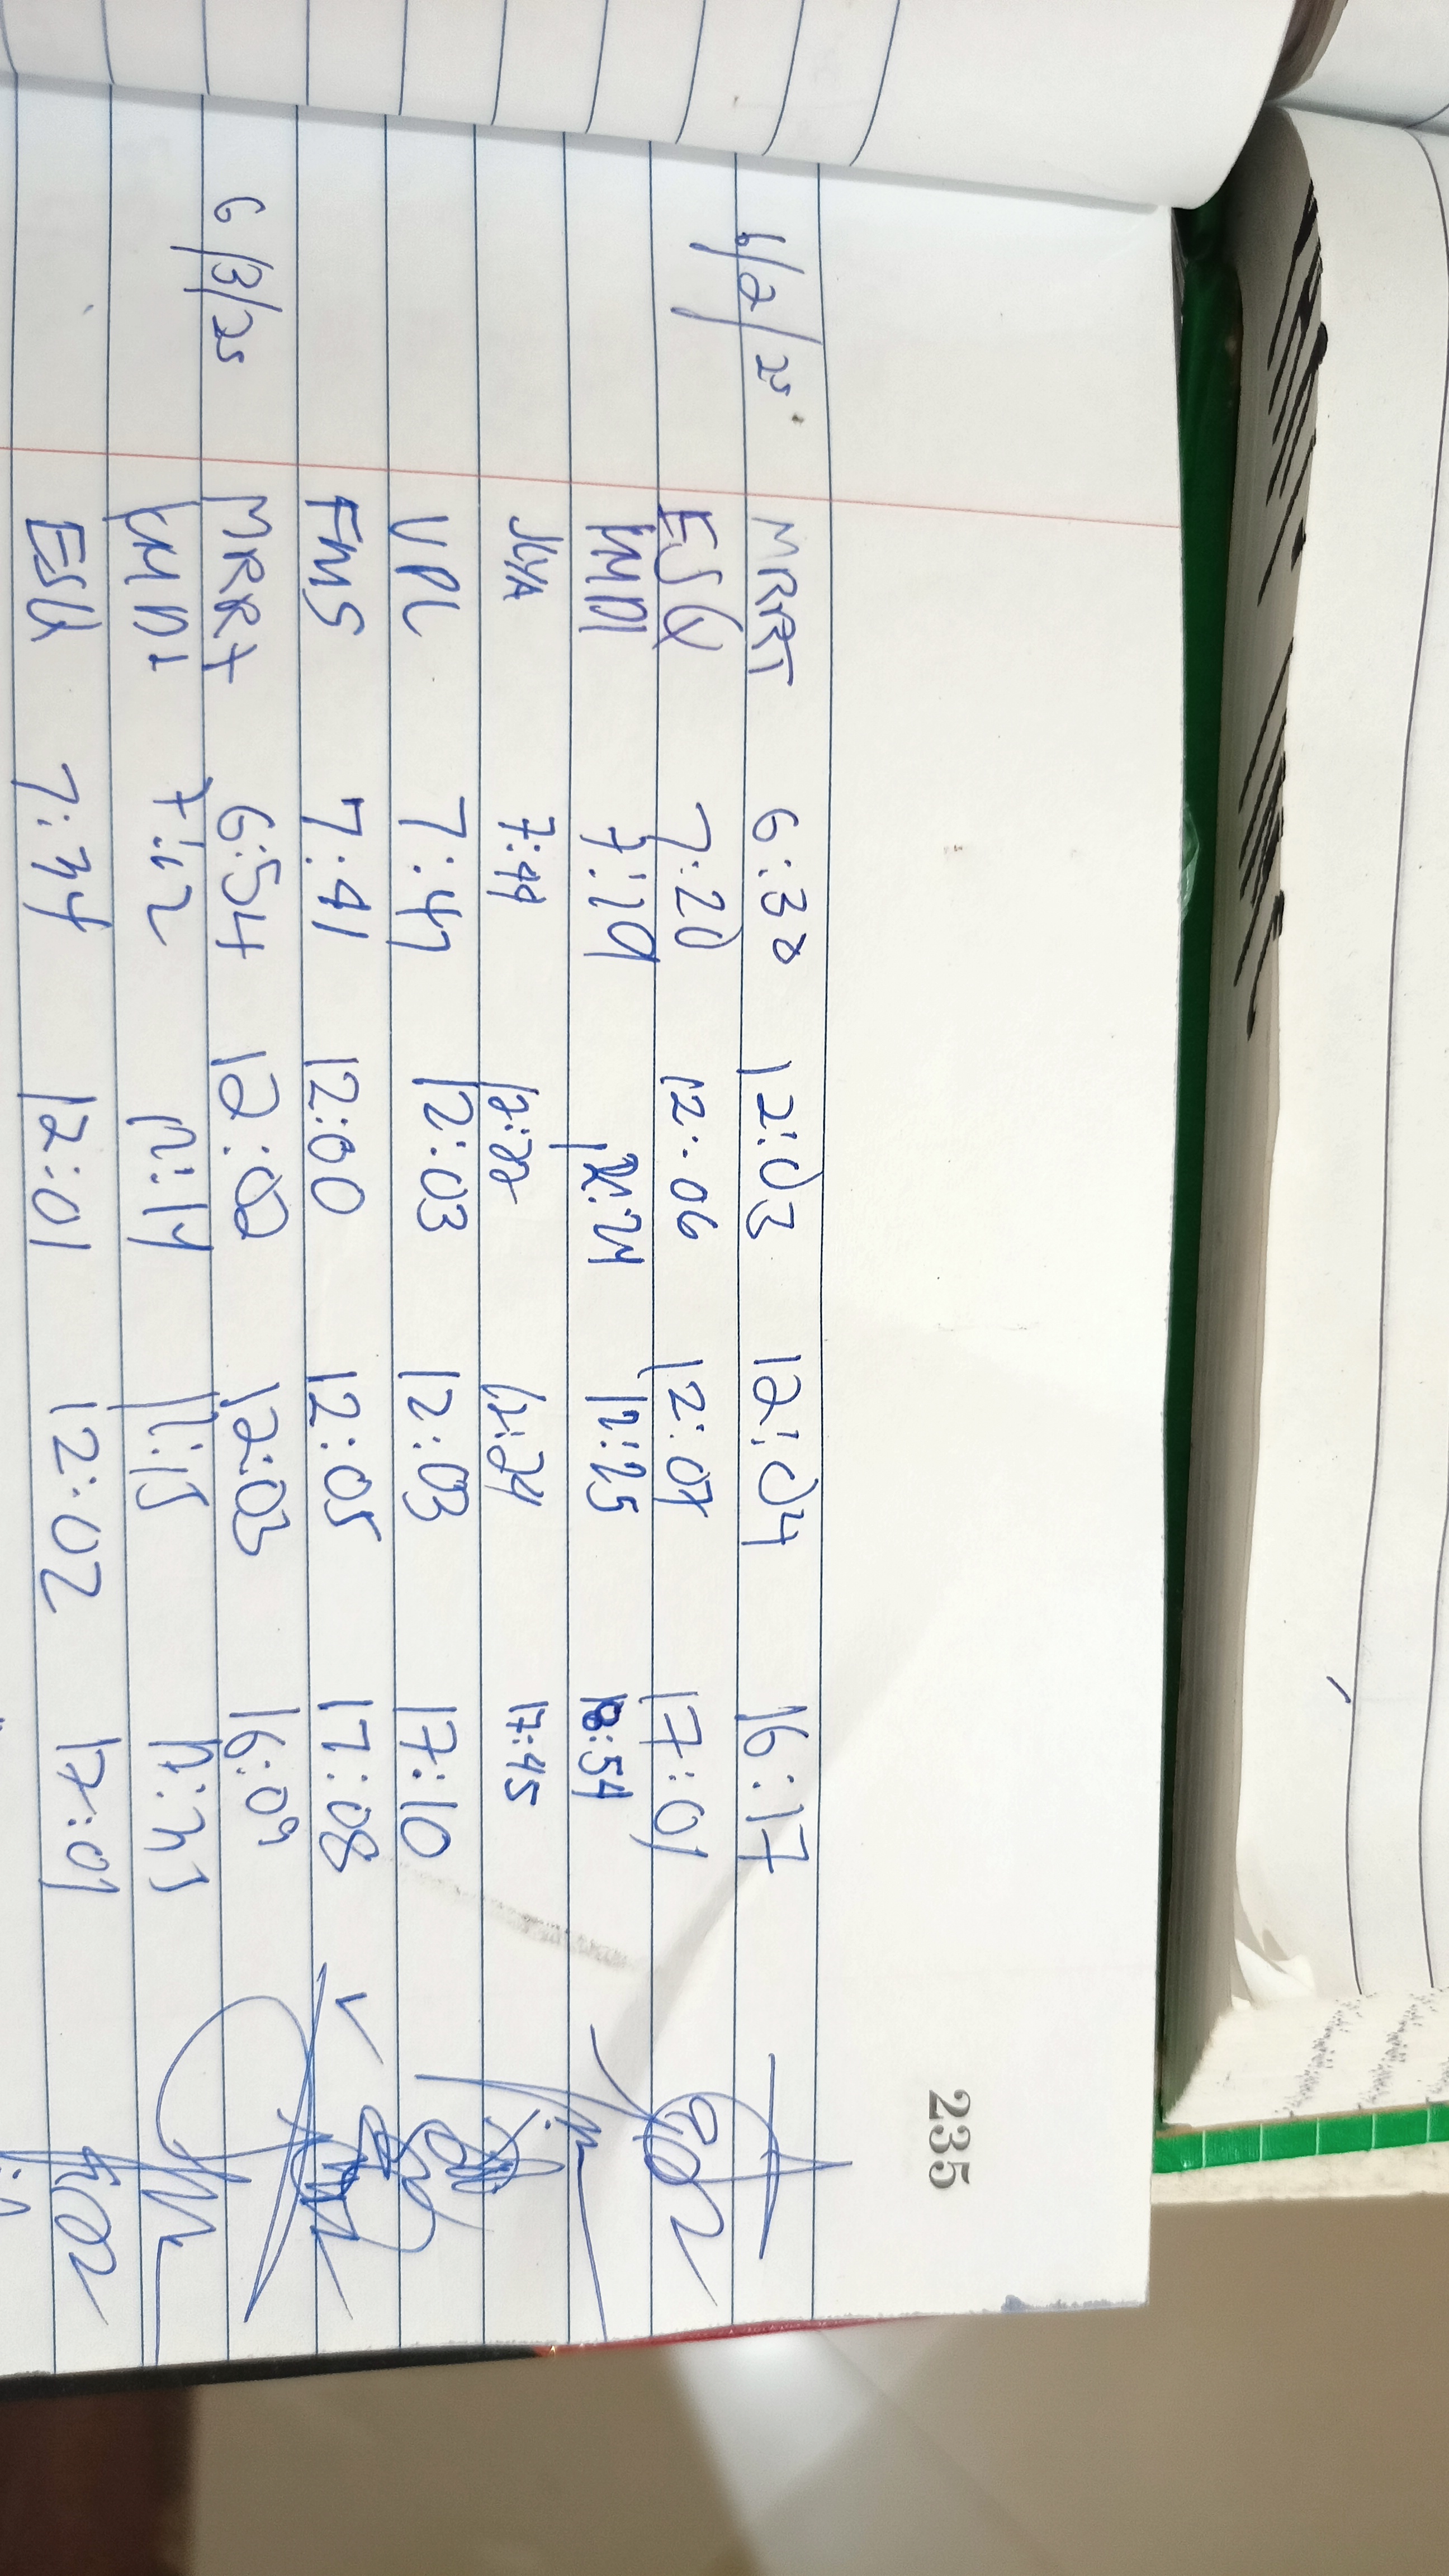 235
6/2/25 MRRT 6:30 12:03 12:04 16:17
ESQ 7:20 12:06 12:07 17:01
KMDI 7:19 12:24 12:25 18:54
7:44 12:22 12:24 17:45
VPL 7:47 12:03 12:03 17:10
FMS 7:41 12:00 12:05 17:08
6/3/25 MRRT 6:54 12:02 12:03 16:09
KMDI 7:12 12:14 12:15
ESQ 7:34 12:01 12:02 17:01